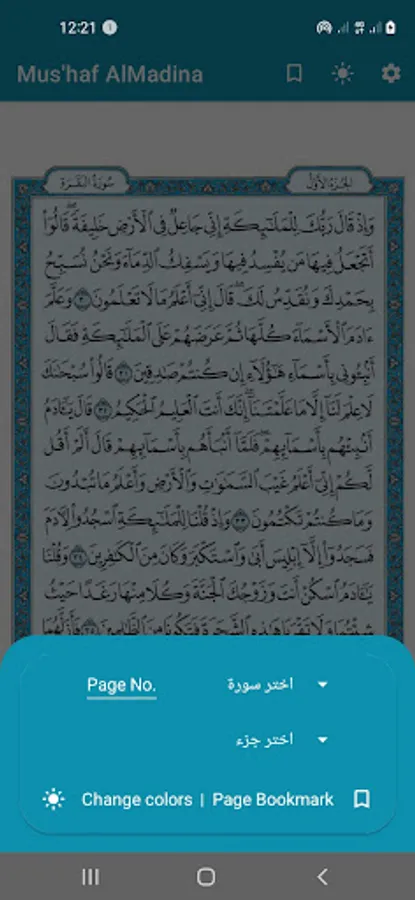 12:21
Mus'haf AlMadina
سورة البقرة
الجزء الأول
وَإِذْ قَالَ رَبُّكَ لِلْمَلَٰٓئِكَةِ إِنِّي جَاعِلٌ فِي الْأَرْضِ خَلِيفَةً ۖ قَالُوٓا۟
أَتَجْعَلُ فِيهَا مَن يُفْسِدُ فِيهَا وَيَسْفِكُ الدِّمَآءَ وَنَحْنُ نُسَبِّحُ
بِحَمْدِكَ وَنُقَدِّسُ لَكَ ۖ قَالَ إِنِّيٓ أَعْلَمُ مَا لَا تَعْلَمُونَ ٣٠ وَعَلَّمَ
ءَادَمَ الْأَسْمَآءَ كُلَّهَا ثُمَّ عَرَضَهُمْ عَلَى الْمَلَٰٓئِكَةِ فَقَالَ
أَنۢبِـُٔونِي بِأَسْمَآءِ هَٰٓؤُلَآءِ إِن كُنتُمْ صَٰدِقِينَ ٣١ قَالُوا۟ سُبْحَٰنَكَ
لَا عِلْمَ لَنَآ إِلَّا مَا عَلَّمْتَنَآ ۖ إِنَّكَ أَنتَ الْعَلِيمُ الْحَكِيمُ ٣٢ قَالَ يَٰٓـَٔادَمُ
أَنۢبِئْهُم بِأَسْمَآئِهِمْ ۖ فَلَمَّآ أَنۢبَأَهُم بِأَسْمَآئِهِمْ قَالَ أَلَمْ أَقُل
لَّكُمْ إِنِّيٓ أَعْلَمُ غَيْبَ السَّمَٰوَٰتِ وَالْأَرْضِ وَأَعْلَمُ مَا تُبْدُونَ
وَمَا كُنتُمْ تَكْتُمُونَ ٣٣ وَإِذْ قُلْنَا لِلْمَلَٰٓئِكَةِ اسْجُدُوا۟ لِءَادَمَ
فَسَجَدُوٓا۟ إِلَّآ إِبْلِيسَ أَبَىٰ وَاسْتَكْبَرَ وَكَانَ مِنَ الْكَٰفِرِينَ ٣٤ وَقُلْنَا
يَٰٓـَٔادَمُ اسْكُنْ أَنتَ وَزَوْجُكَ الْجَنَّةَ وَكُلَا مِنْهَا رَغَدًا حَيْثُ
شِئْتُمَا وَلَا تَقْرَبَا هَٰذِهِ الشَّجَرَةَ فَتَكُونَا مِنَ الظَّٰلِمِينَ ٣٥ فَأَزَلَّهُمَا
Page No.
اختر سورة
اختر جزء
Change colors | Page Bookmark